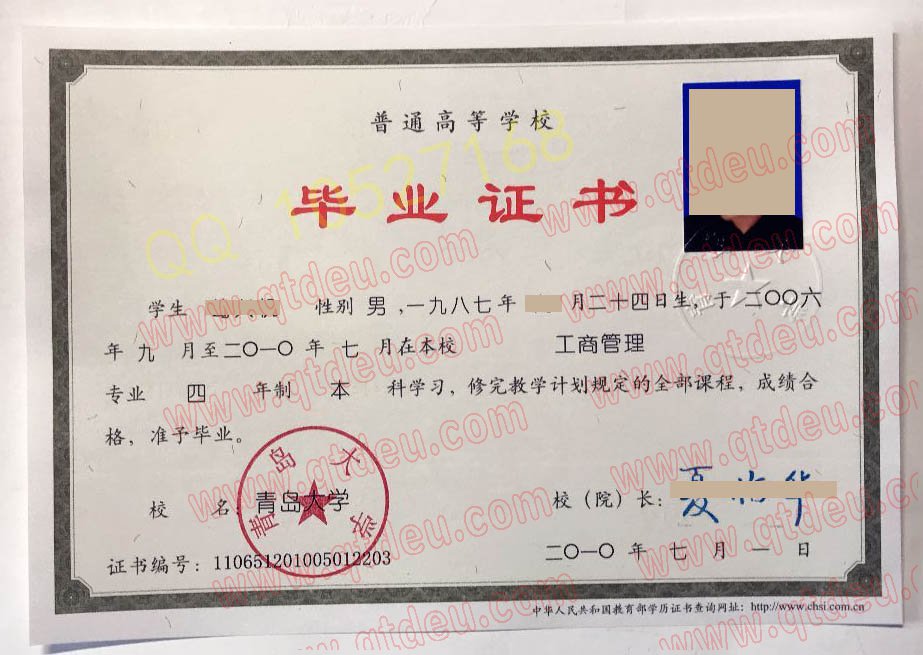 普通高等学校
QQ 16527168
毕业证书
学生 性别 男 ,一九八七年 月二十四日生，于 二〇〇六
年 九 月至二〇一〇 年 七 月在本校 工商管理
专业 四 年制 本 科学习，修完教学计划规定的全部课程，成绩合
格，准予毕业。
青岛大学
校 名： 青岛大学
校（院）长：夏 华
证书编号：110651201005012203
二〇一〇 年 七 月 一 日
中华人民共和国教育部学历证书查询网址：http://www.chsi.com.cn
www.qtdeu.com
www.qtdeu.com
www.qtdeu.com
www.qtdeu.com
www.qtdeu.com
www.qtdeu.com
www.qtdeu.com
www.qtdeu.com